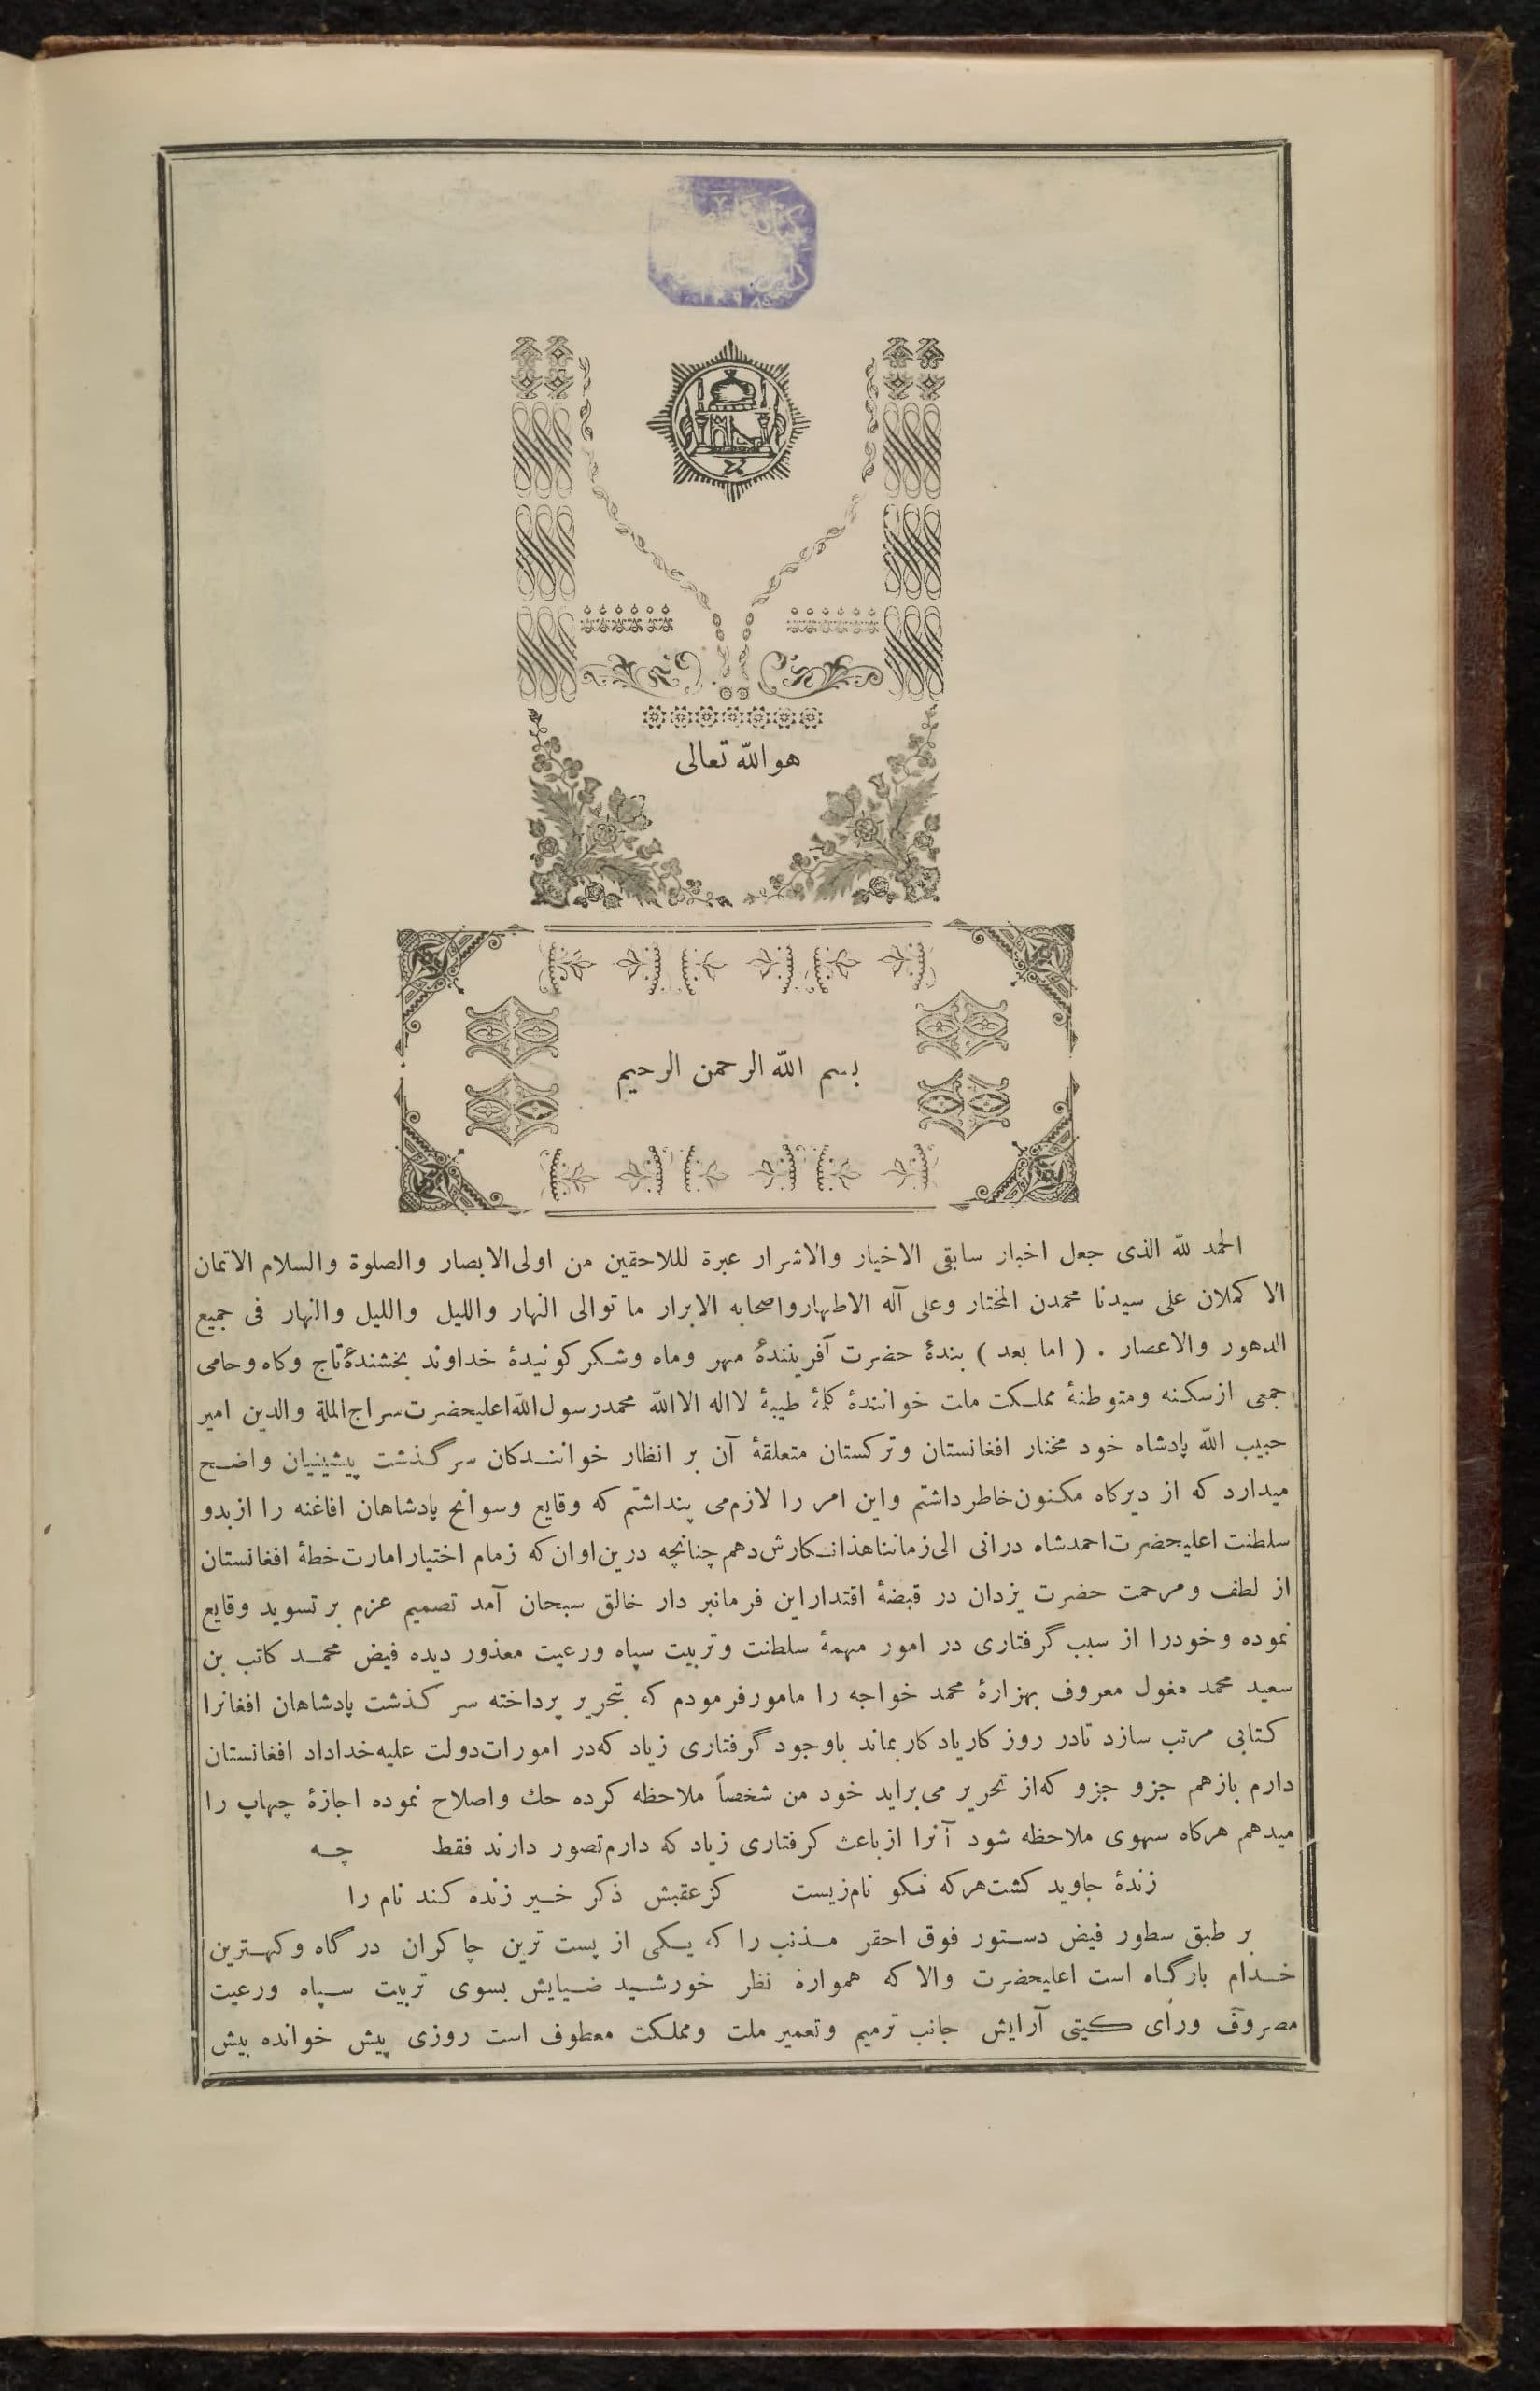 هو الله تعالی
بسم الله الرحمن الرحیم
الحمد لله الذی جعل اخبار سابقی الاخیار والاشرار عبرة للاحقین من اولی‌الابصار والصلوة والسلام الاتمان
الا کملان علی سیدنا محمدن المختار وعلی آله الاطهار واصحابه الابرار ما توالی النهار واللیل واللیل والنهار فی جمیع
الدهور والاعصار . ( اما بعد ) بندهٔ حضرت آفرینندهٔ مهر وماه وشکر کونیدهٔ خداوند بخشندهٔ تاج وکاه وحامی
جمعی ازسکنه ومتوطنهٔ مملکت ملت خوانندهٔ کلمهٔ طیبهٔ لااله الاالله محمدرسول‌الله اعلیحضرت سراج‌الملة والدین امیر
حبیب الله پادشاه خود مختار افغانستان وترکستان متعلقهٔ آن بر انظار خوانندکان سرگذشت پیشینیان واضح
میدارد که از دیرکاه مکنون خاطر داشتم واین امر را لازم می پنداشتم که وقایع وسوانح پادشاهان افاغنه را از بدو
سلطنت اعلیحضرت احمدشاه درانی الی زماننا هذا نکارش دهم چنانچه درین اوان که زمام اختیار امارت خطهٔ افغانستان
از لطف ومرحمت حضرت یزدان در قبضهٔ اقتدار این فرمانبر دار خالق سبحان آمد تصمیم عزم بر تسوید وقایع
نموده وخودرا از سبب گرفتاری در امور مهمهٔ سلطنت وتربیت سپاه ورعیت معذور دیده فیض محمد کاتب بن
سعید محمد مغول معروف بهزارهٔ محمد خواجه را مامور فرمودم که بتحریر پرداخته سر کذشت پادشاهان افغانرا
کتابی مرتب سازد تادر روز کار یادکار بماند باوجود گرفتاری زیاد که در امورات دولت علیه خداداد افغانستان
دارم بازهم جزو جزو که از تحریر می براید خود من شخصاً ملاحظه کرده حك واصلاح نموده اجازهٔ چهاپ را
میدهم هرکاه سهوی ملاحظه شود آنرا ازباعث کرفتاری زیاد که دارم تصور دارند فقط چه
زندهٔ جاوید کشت هرکه نکو نام زیست کز عقبش ذکر خیر زنده کند نام را
بر طبق سطور فیض دستور فوق احقر مذنب را که یکی از پست ترین چاکران درگاه وکهترین
خدام بارگاه است اعلیحضرت والا که همواره نظر خورشید ضیایش بسوی تربیت سپاه ورعیت
مصروف ورأی کیتی آرایش جانب ترمیم وتعمیر ملت ومملکت معطوف است روزی پیش خوانده بیش